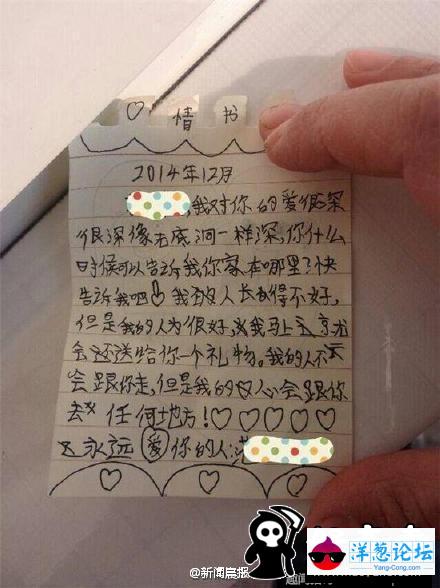 ♡ 情 书
2014年12月
,我对你的爱很深
很深像无底洞一样深,你什么
时候可以告诉我你家在哪里?快
告诉我吧! 我的人长得不好,
但是我的人为很好,我马上
会还送给你一个礼物。我的人不
会跟你走,但是我的心会跟你
去 任何地方!♡♡♡♡♡
永远爱你的人:
♡ ♡ ♡
@新闻晨报
洋葱论坛
Yang-Cong.com